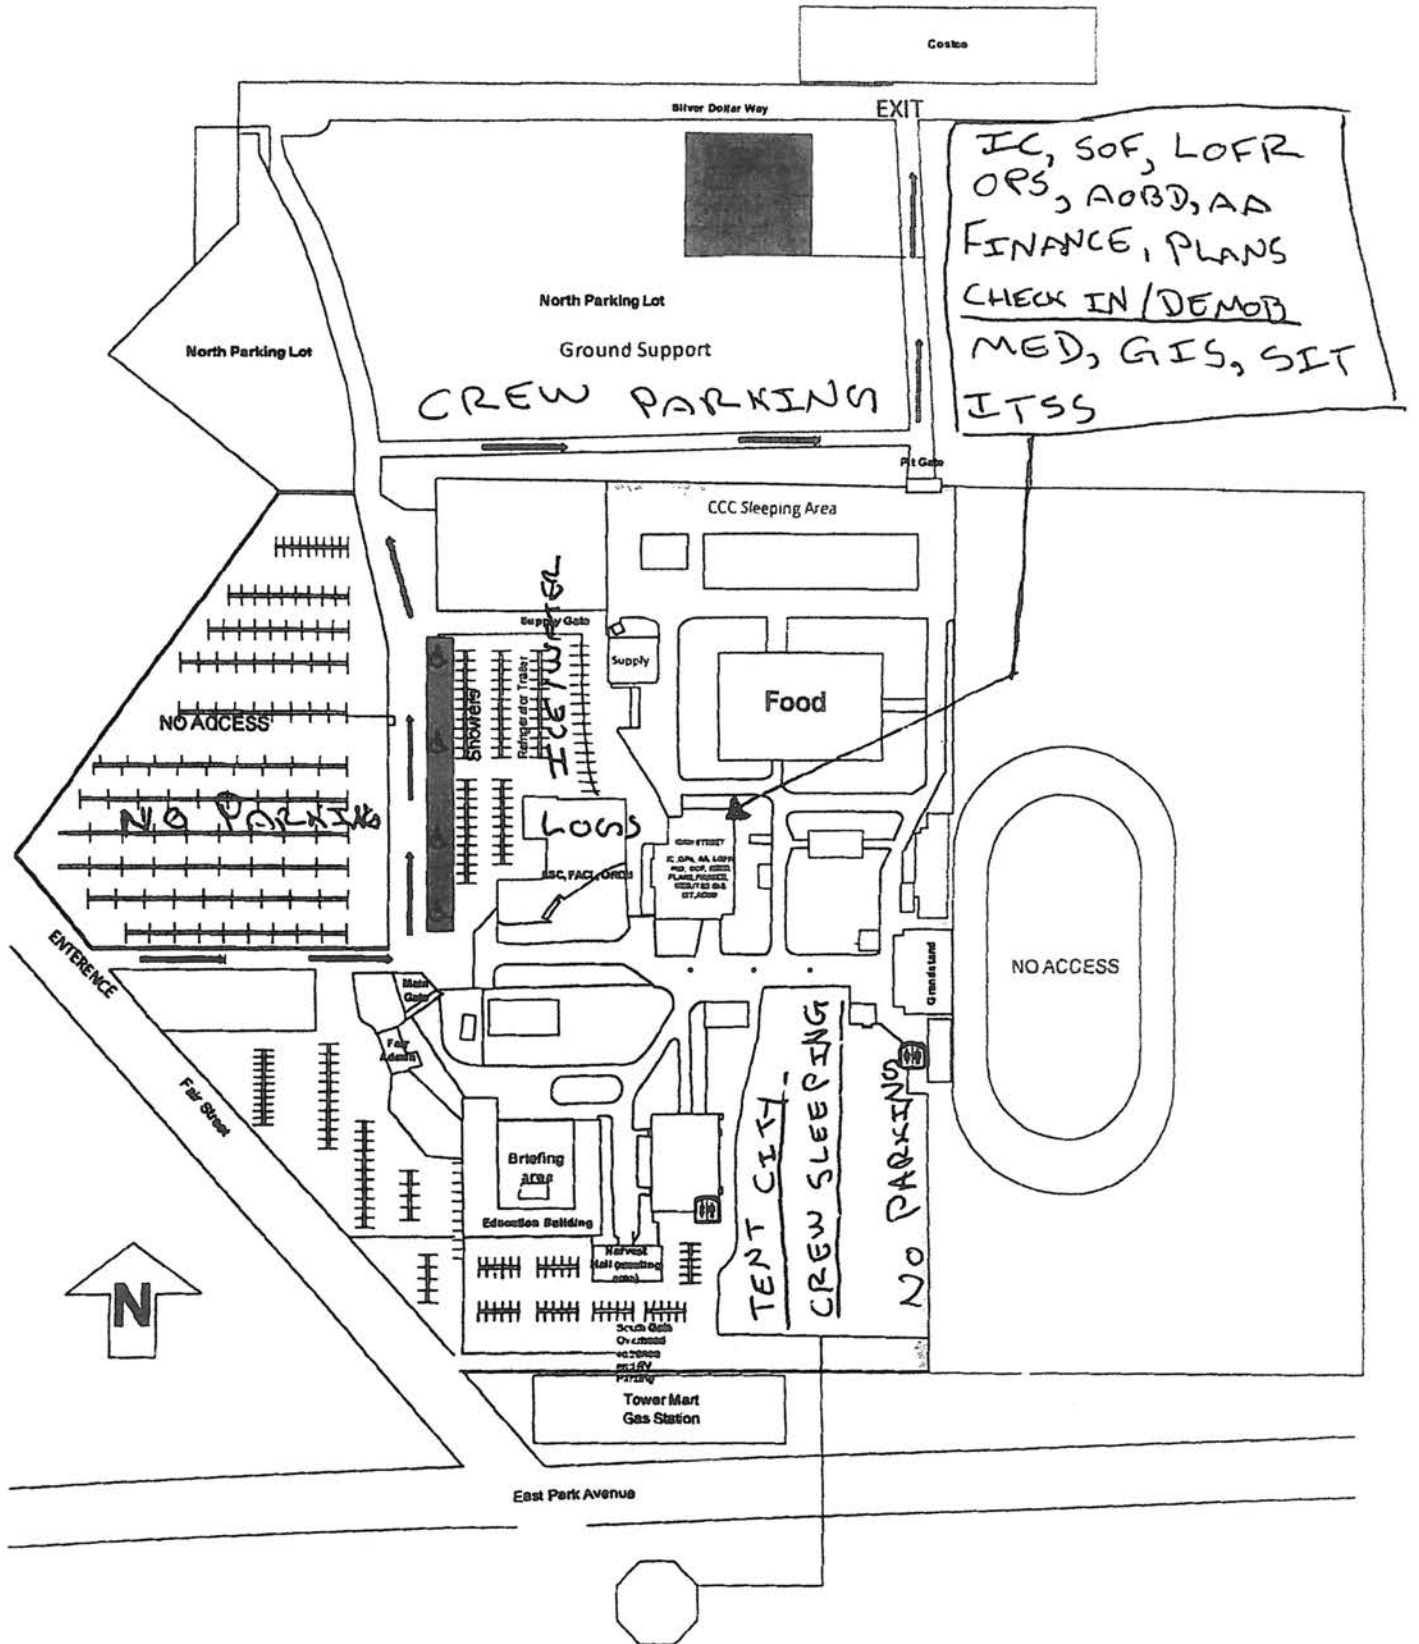 Costco
Silver Dollar Way
EXIT
IC, SOF, LOFR
OPS, AOBD, AA
FINANCE, PLANS
CHECK IN/DEMOB
MED, GIS, SIT
ITSS
North Parking Lot
North Parking Lot
Ground Support
CREW PARKING
Pit Gate
CCC Sleeping Area
Supply Gate
Supply
Showers
Refrigerator Trailer
ICE/WATER
Food
NO ACCESS
NO PARKING
LOGS
FACL, ORDM
ENTERENCE
Main
Gate
Fair
Admin
Fair Street
Grandstand
NO ACCESS
TENT CITY-
CREW SLEEPING
NO PARKING
Briefing
area
Education Building
Harvest
Hall (meeting
area)
N
South Gate
Overhead
Parking
Tower Mart
Gas Station
East Park Avenue